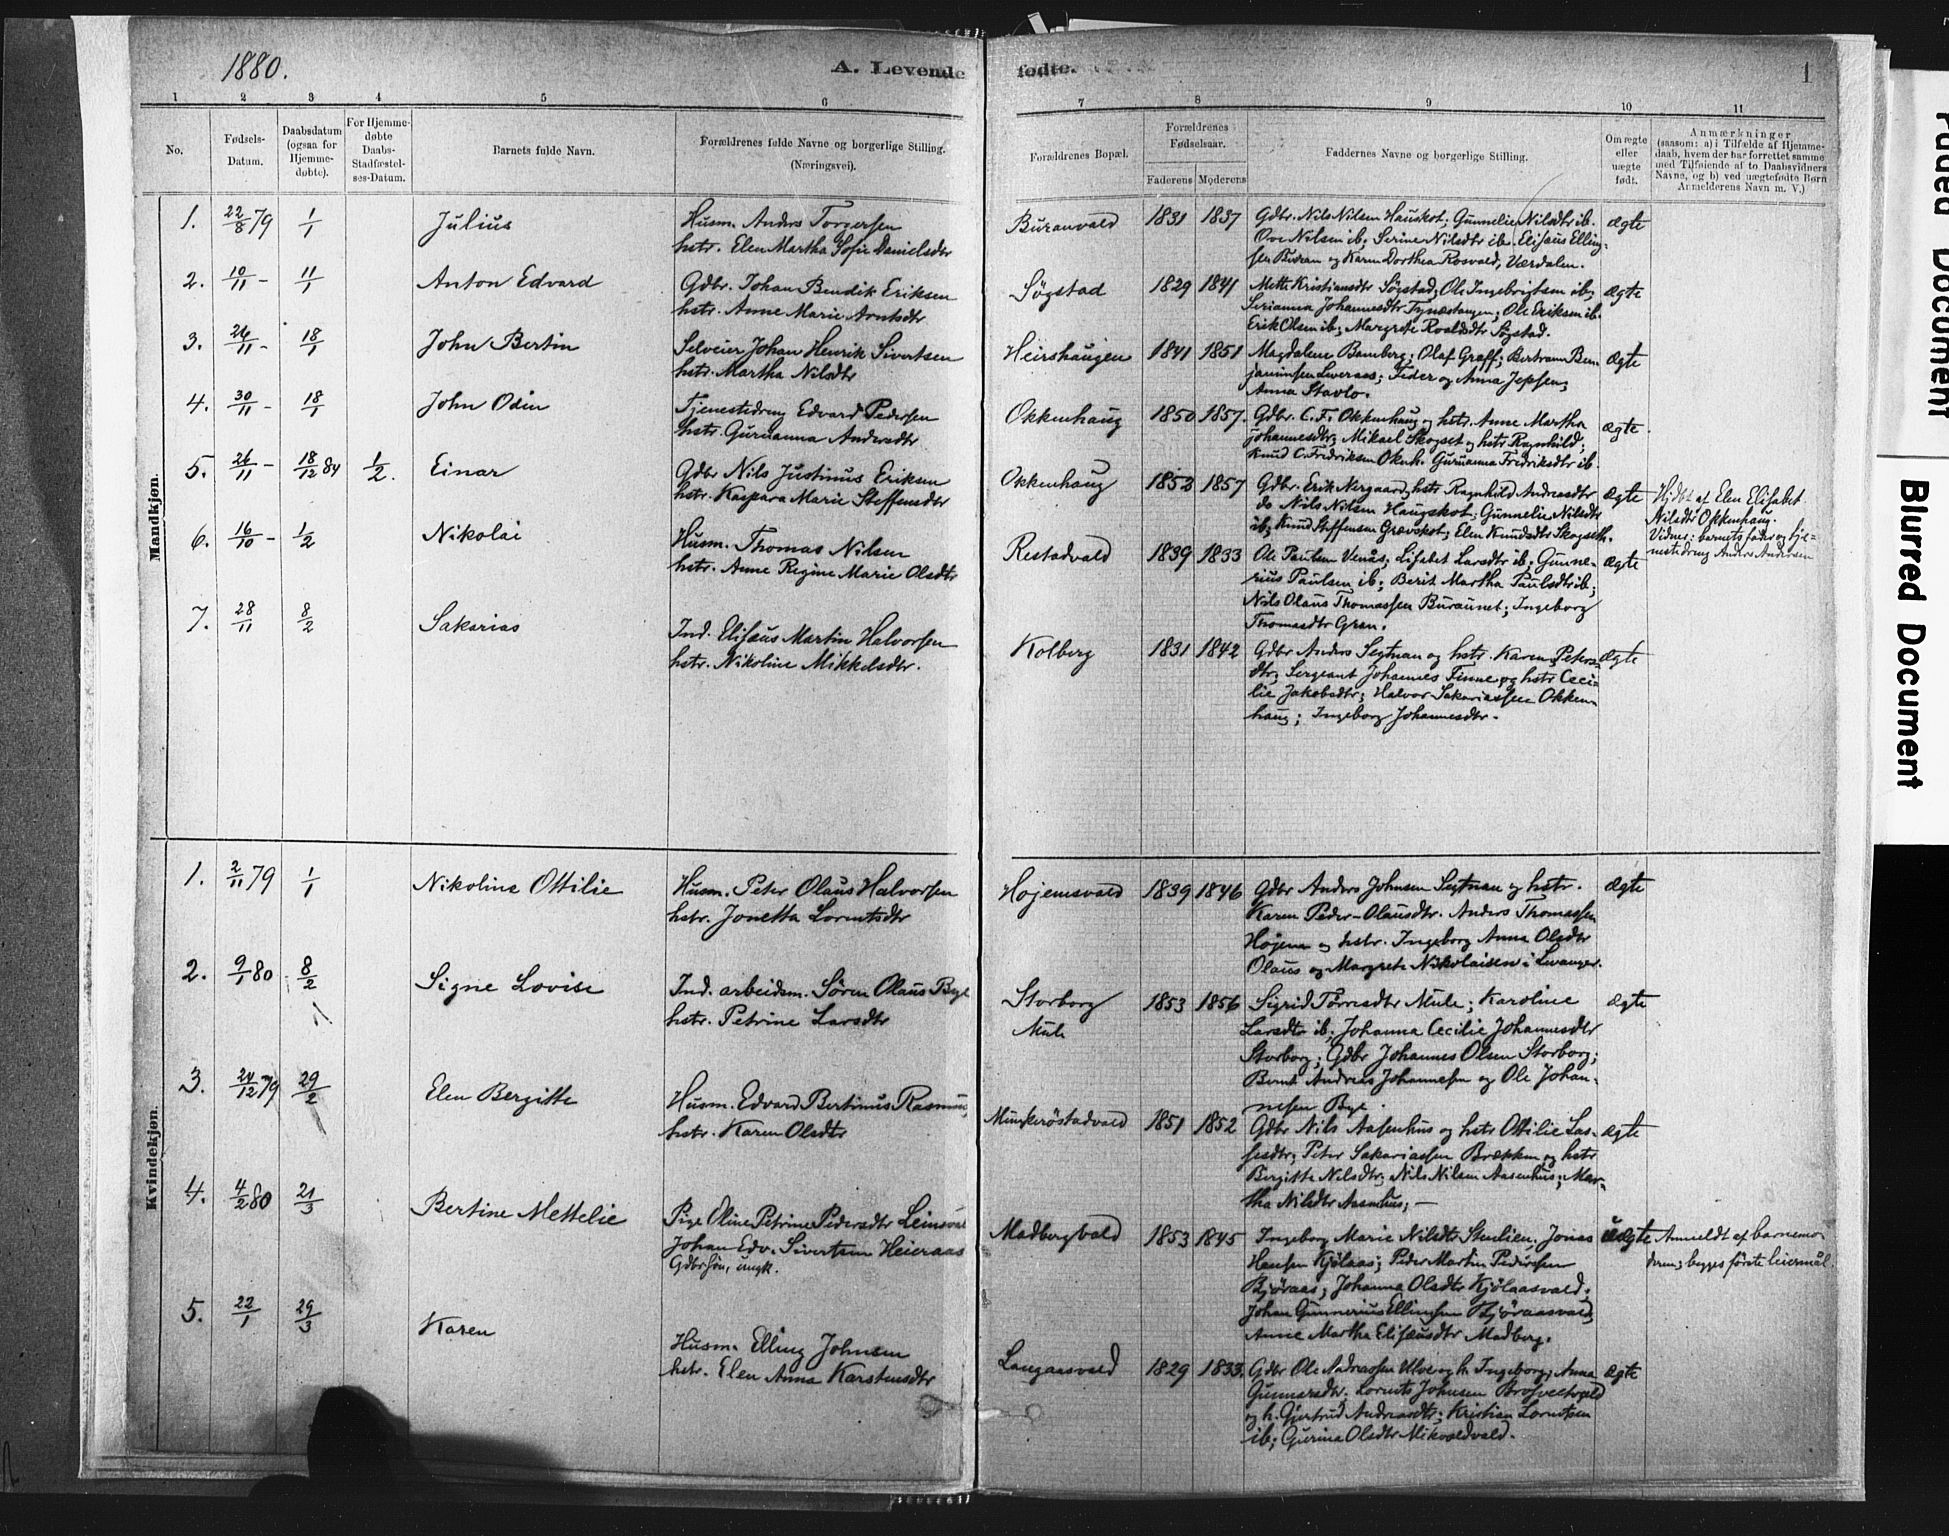 1880.
A. Levende
fødte.
1
1 2 3 4 5 6
7 8 9 10 11
No.
Fødsels-
Datum.
Daabsdatum
(ogsaa for
Hjemme-
døbte).
For Hjemme-
døbte
Daabs-
Stadfæstel-
ses-Datum.
Barnets fulde Navn.
Forældrenes fulde Navne og borgerlige Stilling.
(Næringsvei).
Forældrenes Bopæl.
Forældrenes
Fødselsaar.
Faderens Moderens
Faddernes Navne og borgerlige Stilling.
Om ægte
eller
uægte
født.
Anmærkninger
(saasom: a) i Tilfælde af Hjemme-
daab, hvem der har forrettet samme
med Tilføiende af to Daabsvidners
Navne, og b) ved uægtefødte Børn
Anmelderens Navn m. V.)
Mandkjøn.
1. 22/8 79 1/1 Julius
Husm. Anders Torgersen
hstr. Elen Martha Sofie Danielsdtr
Buranvald 1831 1837
Gdbr. Nils Nilsen Hauskot; Gunnelie Nilsdtr ib.
Ove Nilsen ib; Serine Nilsdtr ib. Elisæus Elling-
sen Buran og Karen Dorthea Rosvald, Værdalen.
ægte
2. 10/11 - 11/1 Anton Edvard
Gdbr. Johan Bendik Eriksen
hstr. Anne Marie Arntsdtr
Søgstad 1829 1841
Mette Kristiansdtr Søgstad; Ole Ingebrigtsen ib;
Serianna Johannesdtr Tynæstangen; Ole Eriksen ib.
Erik Olsen ib; Margrete Roaldsdtr Søgstad.
ægte
3. 26/11 - 18/1 John Bertin
Selveier Johan Henrik Sivertsen
hstr. Martha Nilsdtr
Heirshaugen 1841 1851
Magdalene Bamberg; Olaf Graff; Bertram Ben-
jaminsen Leveraas; Peder og Anna Jepsen;
Anna Stavlo.
ægte
4. 30/11 - 18/1 John Odin
Tjenestedreng Edvard Pedersen
hstr. Guruanna Andersdtr
Okkenhaug 1850 1857.
Gdbr. C. F. Okkenhaug og hstr. Anne Martha
Johannesdtr; Mikael Skogset og hstr Ragnhild;
Knud C. Fredriksen Okenh. Guruanna Fredriksdtr ib.
ægte
5. 26/11 - 18/12 84 1/2. Einar
Gdbr Nils Justinus Eriksen
hstr. Kaspara Marie Steffensdtr
Okkenhaug 1853 1857
Gdbr. Erik Nergaard, hstr Ragnhild Andreasdtr
do Nils Nilsen Haugskot; Gunnelie Nilsdtr
ib; Knud Steffensen Grævskot; Elen Knudsdtr Skogseth.
ægte
Hjdbt af Elen Elisabet
Nilsdtr Okkenhaug.
Vidner: barnets fader og tje-
nestedreng Anders Andersen
6. 16/10 - 1/2 Nikolai
Husm. Thomas Nilsen
hstr. Anne Regine Marie Olsdtr
Restadvald 1839 1833
Ole Paulsen Venås; Lisabet Larsdtr ib; Gunne-
rius Paulsen ib; Berit Martha Paulsdtr ib;
Nils Olaus Thomassen Buraunet; Ingeborg
Thomasdtr Gran.
ægte
7. 28/11 8/2 Sakarias
Ind. Elisæus Martin Halvorsen
hstr. Nikoline Mikkelsdtr.
Kolberg 1831 1842
Gdbr Anders Segtnan og hstr. Karen Peters-
dtr; Sergeant Johannes Finne og hstr Ceci-
lie Jakobsdtr; Halvor Sakariassen Okken-
haug; Ingeborg Johannesdtr.
ægte
Kvindekjøn.
1. 2/11 79 1/1 Nikoline Ottilie
Husm. Peter Olaus Halvorsen
hstr. Jonetta Lorntsdtr
Højemsvald 1839 1846
Gdbr Anders Johnsen Segtnan og hstr.
Karen Peder-Olausdtr. Anders Thomassen
Højem og hstr. Ingeborg Anna Olsdtr
Olaus og Margrete Nikolaisen i Levanger.
ægte
2. 9/1 80 8/2 Signe Lovise
Ind. arbeidsm. Sören Olaus Bye
hstr. Petrine Larsdtr
Storborg
Mule
1853 1856
Sigrid Tørresdtr Mule; Karoline
Larsdtr ib; Johanna Cecilie Johannesdtr
Storborg; Gdbr Johannes Olsen Storborg;
Bernt Andreas Johannesen og Ole Johan-
nesen Bye.
ægte
3. 24/12 79 29/2 Elen Bergitte
Husm. Edvard Bertinus Rasmus,
hstr. Karen Olsdtr
Munkeröstadvald 1851 1852
Gdbr Nils Aasenhus og hstr Ottilie Las-
sesdtr; Peter Sakariassen Brækken og hstr
Bergitte Nilsdtr; Nils Nilsen Aasenhus; Mar-
tha Nilsdtr Aasenhus; -
ægte
4. 4/2 80 21/3 Bertine Mettelie
Pige Oline Petrine Pedersdtr Leinsvald
Johan Edv. Sivertsen Heieraas
Gdbrsøn, ungk.
Madbergvald 1853 1845
Ingeborg Marie Nilsdtr Stenlien. Jonas
Hansen Kjölaas; Peder Martin Pedersen
Björaas; Johanna Olsdtr Kjölaasvald;
Johan Gunnerius Ellingsen Björaasvald
Anne Martha Elisæusdtr Madberg.
uægte
Anmeldt af barnemo-
deren; begges förste leiermål.
5. 22/1 29/3 Karen
Husm. Elling Johnsen
hstr. Elen Anna Karstensdtr
Langaasvald 1829 1833.
Gdbr Ole Andreassen Ulve og h. Ingeborg Anna
Gunnarsdtr; Lornts Johnsen
og h. Gjertrud Andreasdtr; Kristian Lorntsen
ib; Gjerina Olsdtr Mikvoldvald.
ægte
Faded Document
Blurred Document